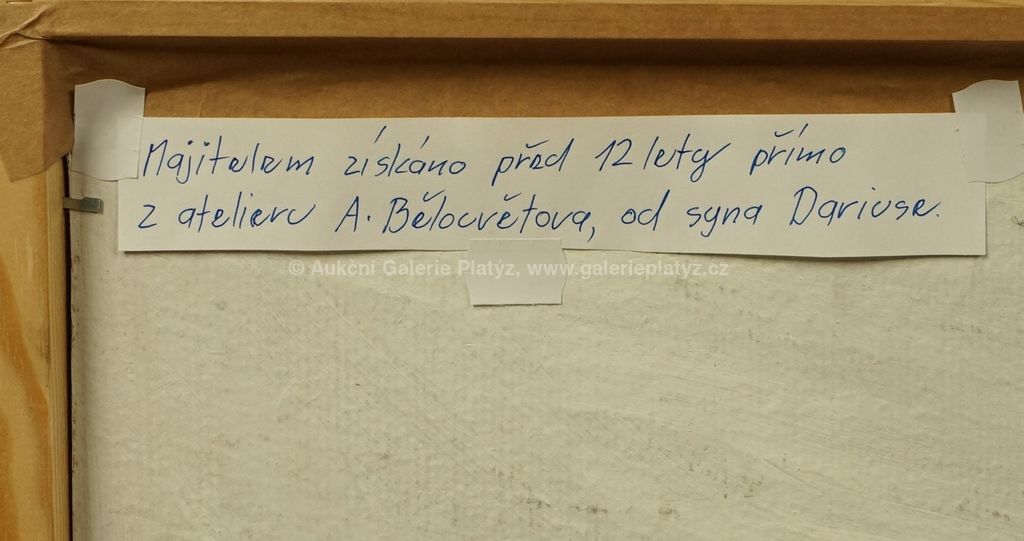 Majitelem získáno před 12 lety přímo
z atelieru A. Bělocvětova, od syna Dariuse.
© Aukční Galerie Platýz, www.galerieplatyz.cz